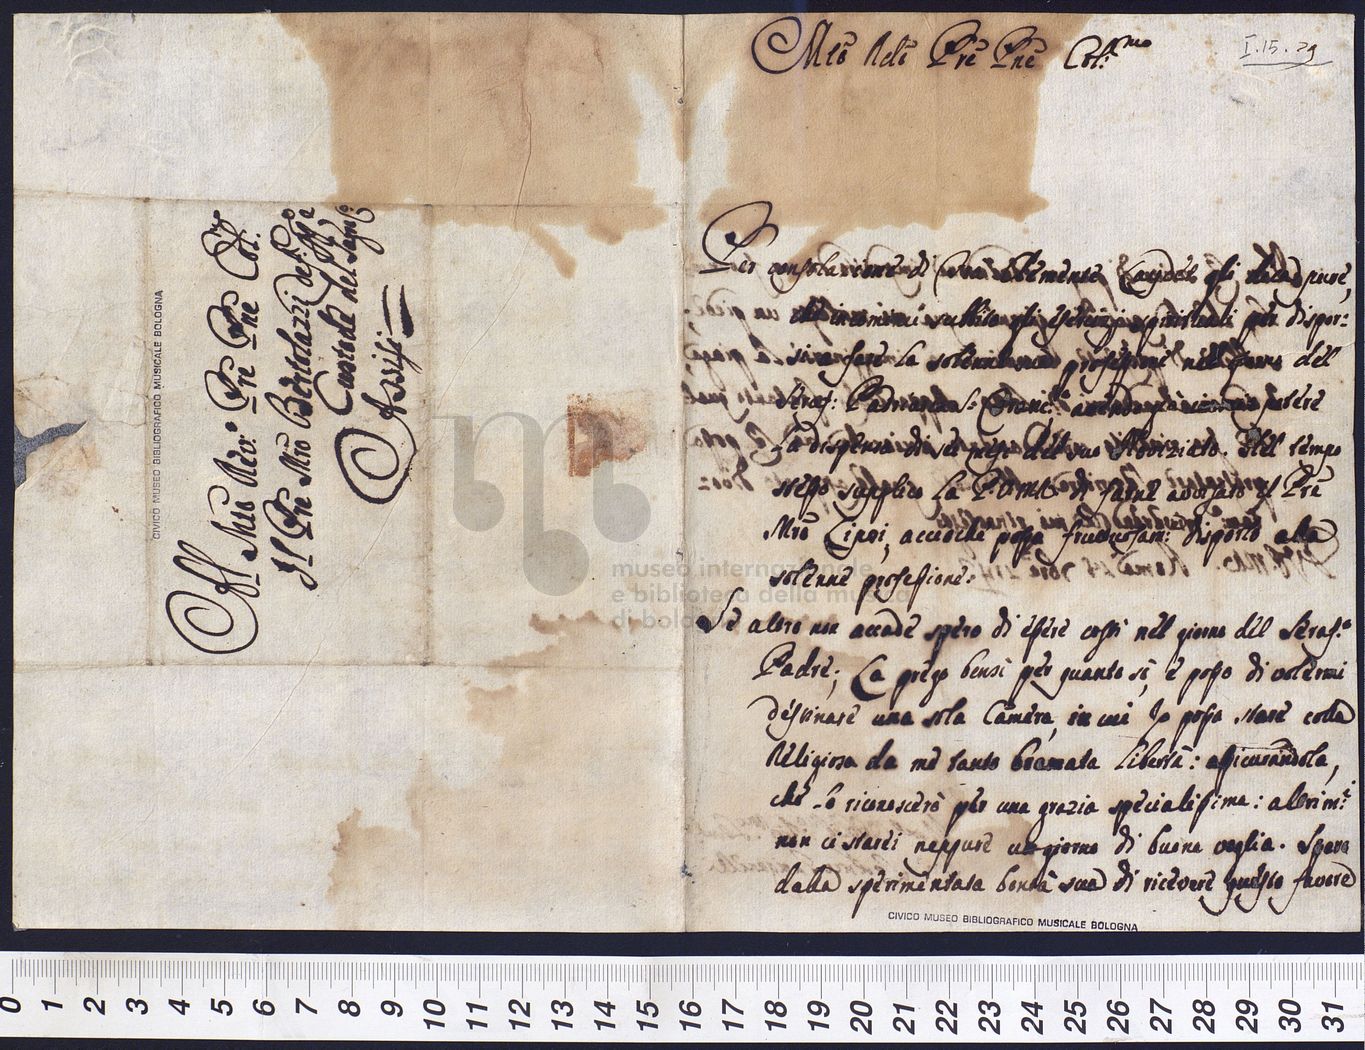 Al Mtõ Rev.º Prẽ Prẽ Col.
Il Prẽ Mrõ Bertolazzi
Custode del Sagro
Assisi
CIVICO MUSEO BIBLIOGRAFICO MUSICALE BOLOGNA
museo internazionale
e biblioteca della musica
di bologna
I.15.29
Mtõ Rdõ Prẽ Prẽ Col.mo
Per
incominci subito gli esercizi spirituali per dispor=
si a fare la solenne professione nel giorno del
Seraf: Padre S. Franc.º avendo avere
la dispensa di sei mesi del suo Noviziato. Nel tempo
stesso supplico la P. V. M. R. di farne avvisato il Prẽ
Mrõ acciochè possa disporlo alla
solenne professione.
Se altro non accade spero di essere costì nel giorno del Seraf.º
Padre; La prego bensì per quanto si è posso di volermi
destinare una sola Camera, in cui Io possa stare colla
Religiosa da me tanto bramata libertà: assicurandola,
che lo riconoscerò per una grazia specialissima: altrim.i
non ci starei neppure un giorno di buona voglia. Spero
dalla sperimentata bontà sua di ricevere questo favore
CIVICO MUSEO BIBLIOGRAFICO MUSICALE BOLOGNA
0 1 2 3 4 5 6 7 8 9 10 11 12 13 14 15 16 17 18 19 20 21 22 23 24 25 26 27 28 29 30 31